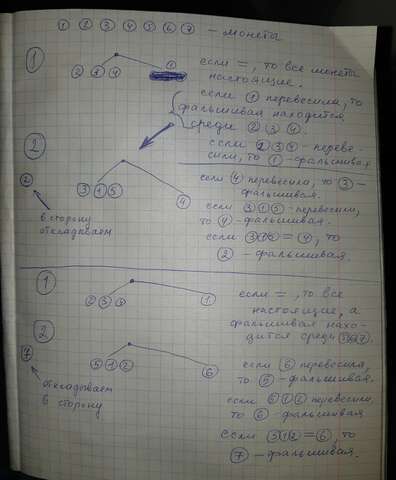 1 2 3 4 5 6 7 - монета
1
2 3 4 1
если =, то все монеты
настоящие.
если 1 перевесила, то
фальшивая находится
среди 2 3 4.
если 2 3 4 - переве-
сили, то 1 - фальшивая
2
2
3 1 5 4
в сторону
откладываем
если 4 перевесила, то 3 -
фальшивая.
если 3 1 5 - перевесили,
то 4 - фальшивая.
если 3 1 5 = 4, то
2 - фальшивая.
1
2 3 4 1
если =, то все
настоящие, а
фальшивая нахо-
дится среди 5 6 7.
2
7
5 1 2 6
откладываем
в сторону
если 6 перевесила,
то 5 - фальшивая.
если 5 1 2 перевесили,
то 6 - фальшивая
если 5 1 2 = 6, то
7 - фальшивая.